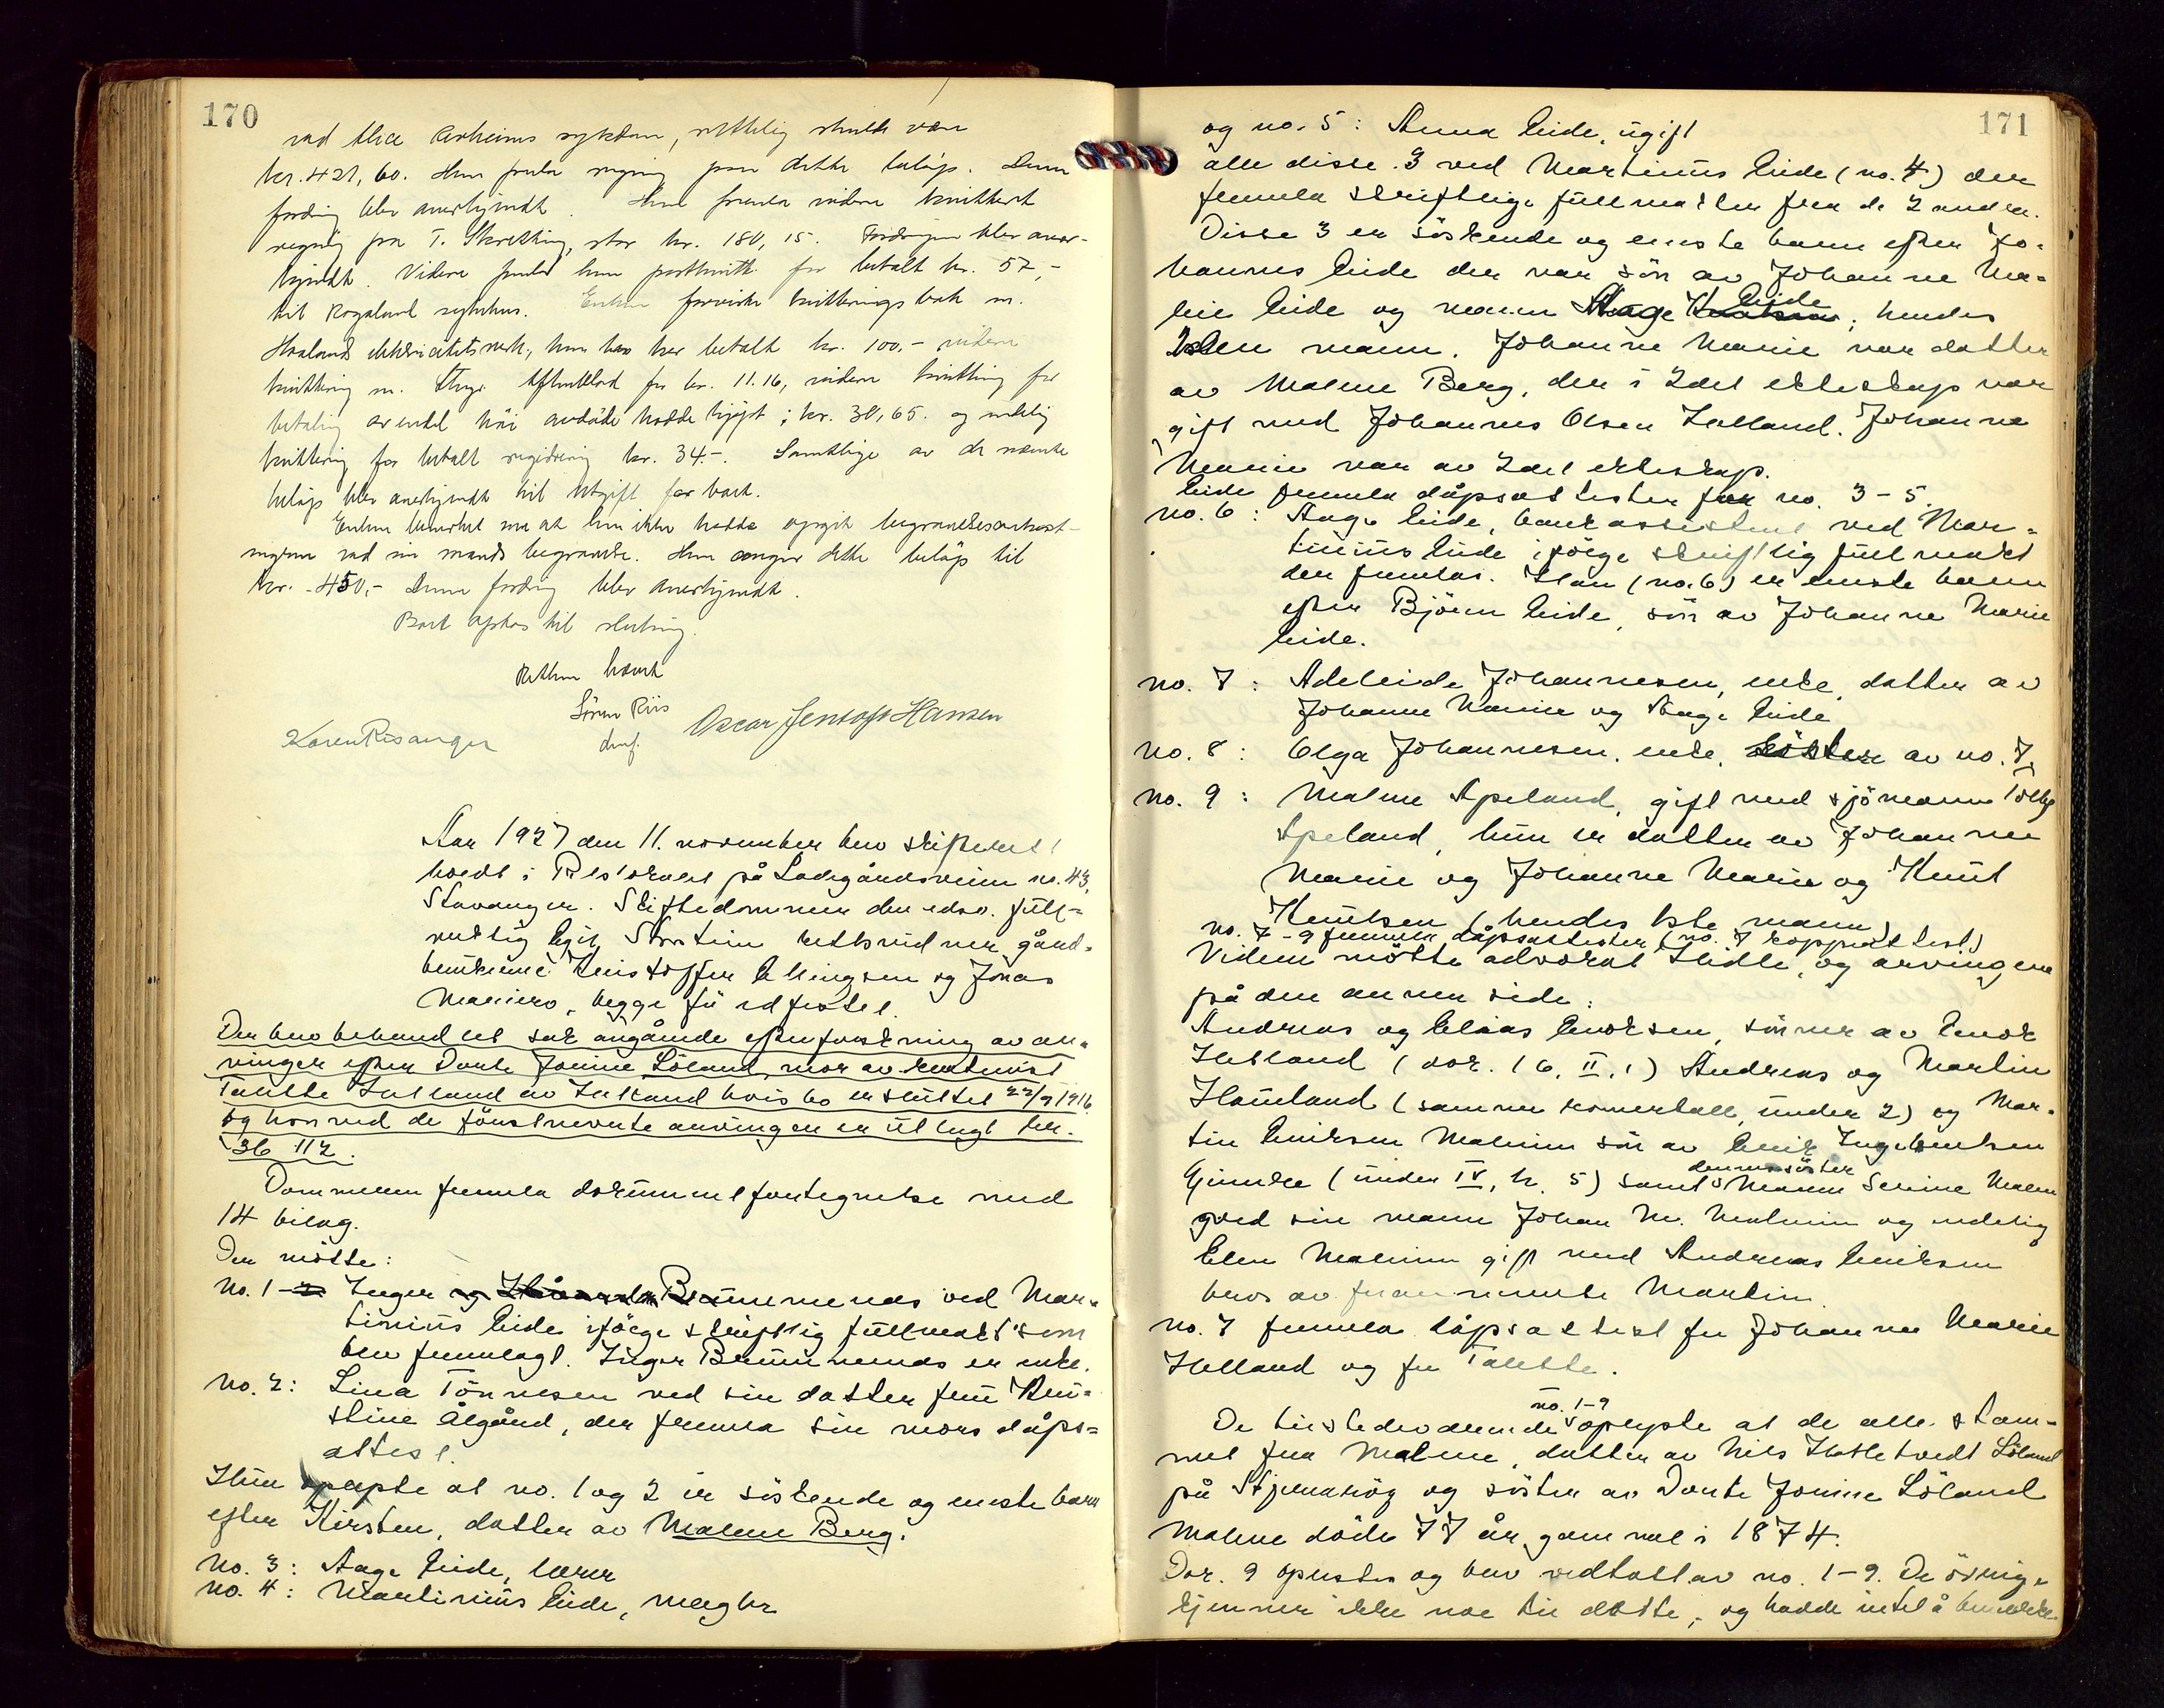 170
ved Alice Aarheims sykdom, rettelig skulde være
kr. 421,60. Hun frala regning paa dette beløp. Denne
fordring blev anerkjendt. Hun fremla videre kvittert
regning fra T. Skretting, stor kr. 180,15. Fordringen blev aner-
kjendt. Videre fremla hun postkvitt. for betalt kr. 57,-
til Rogaland sykehus. Enken foreviste kvitteringsbok m.
Haalands elektricitetsverk, hun har her betalt kr. 100,- videre
kvittering m. Stvgr. Aftenblad for kr. 11.16, videre kvittering for
betaling av endel høi avdøde hadde kjøpt; kr. 30,65. og endelig
kvittering for betalt kr. 34.-. Samtlige av de nævnte
beløp blev anerkjendt til utgift for boet.
Enken bemerket nu at hun ikke hadde opgit begravelsesomkost-
ningerne ved sin mands begravelse. Hun angir dette beløp til
kr. 450,- Denne fordring blev anerkjendt.
Boet optas til slutning.
Retten hævet
Søren Riis
dmf.
Karen Risanger
Oscar Jentoft Hansen
Aar 1927 den 11. november blev skifterett
holdt i Rettslokalet på Ladegårdsveien nr. 43,
Stavanger. Skiftedommer den edsv. full-
mektig Egil rettsvidner gård-
brukerne Kristoffer Ellingsen og Jonas
Maniero, begge fü edfestet.
Der blev behandlet sak angående efterforskning av ar-
vinger efter Dorte Jonine Löland, mor av
Talette Helland av Helland hvis bo er sluttet 22/9 1916
og hvorved de fönstnevnte arvinger er utlagt kr.
36 112.
Dommeren fremla dokumentfortegnelse med
14 bilag.
Der mötte:
No. 1-2 Inger og Håvarda Brummenæs ved Mar-
tinius Eide ifölge skriftlig fullmakt som
blev fremlagt. Inger Brummenæs er enke.
No. 2: Lina Tönnesen ved sin datter frü Kri-
stine Ålgård, der fremla sin mors dåps-
attest.
Hun oplyste at no. 1 og 2 er söskende og eneste barn
efter Kirsten, datter av Malene Berg.
No. 3: Aage Eide, lærer
No. 4: Martinius Eide, megler
171
og no. 5: Anna Eide, ugift
alle disse 3 ved Martinius Eide (no. 4) der
fremla skriftlige fullmakter fra de 2 andre.
Disse 3 er söskende og eneste barn efter Jo-
hannes Eide der var sön av Johanne Ma-
rie Eide og mann Aage Knutsen Eide, hendes
2den mann. Johanne Marie var datter
av Malene Berg, der i 2det ekteskap var
gift med Johannes Olsen Helland. Johanne
Marie var av 2det ekteskap.
Eide fremla dåpsattester for no. 3-5.
No. 6: Aage Eide, bankassistent ved Mar-
tinius Eide ifölge skriftlig fullmakt
der fremlas. Han (no. 6) er eneste barn
efter Björn Eide, sön av Johanne Marie
Eide.
No. 7: Adeleide Johannesen, enke, datter av
Johanne Marie og Aage Eide
No. 8: Olga Johannesen, enke, söster av no. 7.
No. 9: Malene Apeland, gift med sjömann Tölleg
Apeland, hun er datter av Johanne
Marie og Johanne Marie og Knut
Knutsen (hendes 1ste mann)
no. 7-9 fremla dåpsattester (no. 7 koppeattest)
Videre mötte advokat Hidle, og arvingene
på den annen side:
Andreas og Elias Enoksen, sönner av Enok
Helland (dok. 16, II, 1) Andreas og Martin
Hauland (samme romertall, under 2) og Mar-
tin Eriksen Malmin sön av Eirik Ingebretsen
Gjimre (under IV, h. 5) samt dennes söster Maren Serine Malm
ved sin mann Johan M. Malmin og endelig
Elen Malmin gift med Andreas Eriksen
begs av frannevnte Martin.
No. 7 fremla dåpsattest for Johanne Marie
Helland og for Talette.
De tilstedeværende no. 1-9 oplyste at de alle stam-
met fra Malene, datter av Nils Hatletvedt Löland
på Stjernaröy og söster av Dorte Jonine Löland
Malene döde 77 år gammel i 1874.
Dok. 9 oplestes og blev vedtatt av no. 1-9. De övrige
kjenner ikke noe til dette, og hadde intet å bemerke.